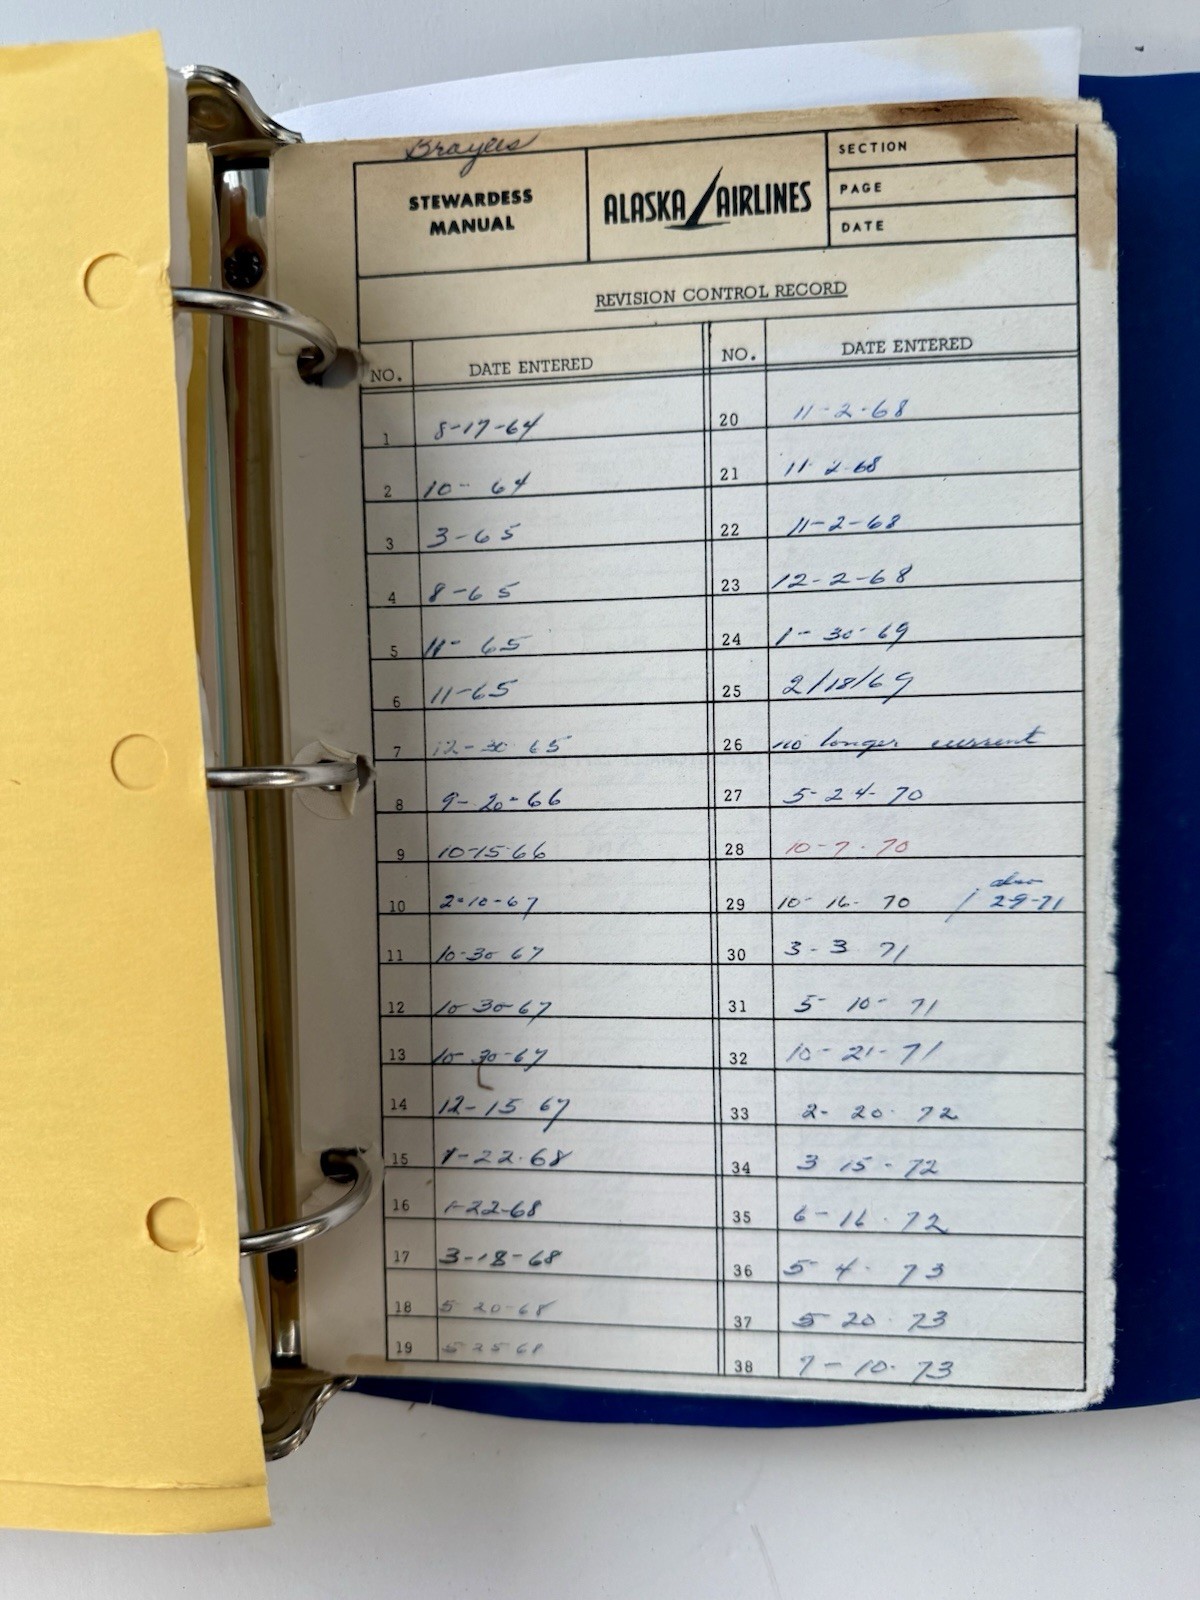 STEWARDESS
MANUAL
ALASKA AIRLINES
SECTION
PAGE
DATE
REVISION CONTROL RECORD
NO. DATE ENTERED NO. DATE ENTERED
1 8-17-64 20 11-2-68
2 10- 64 21 11-2-68
3 3-65 22 11-2-68
4 8-65 23 12-2-68
5 11- 65 24 1-30-69
6 11-65 25 2/18/69
7 12-30-65 26 no longer current
8 9-20-66 27 5-24-70
9 10-15-66 28 10-7-70
10 2-10-67 29 10-16-70 / also 2-9-71
11 10-30-67 30 3-3 71
12 10-30-67 31 5-10-71
13 10-30-67 32 10-21-71
14 12-15 67 33 2-20-72
15 1-22-68 34 3 15-72
16 1-22-68 35 6-16-72
17 3-18-68 36 5-4-73
18 5 20-68 37 5 20-73
19 5 25 68 38 7-10-73